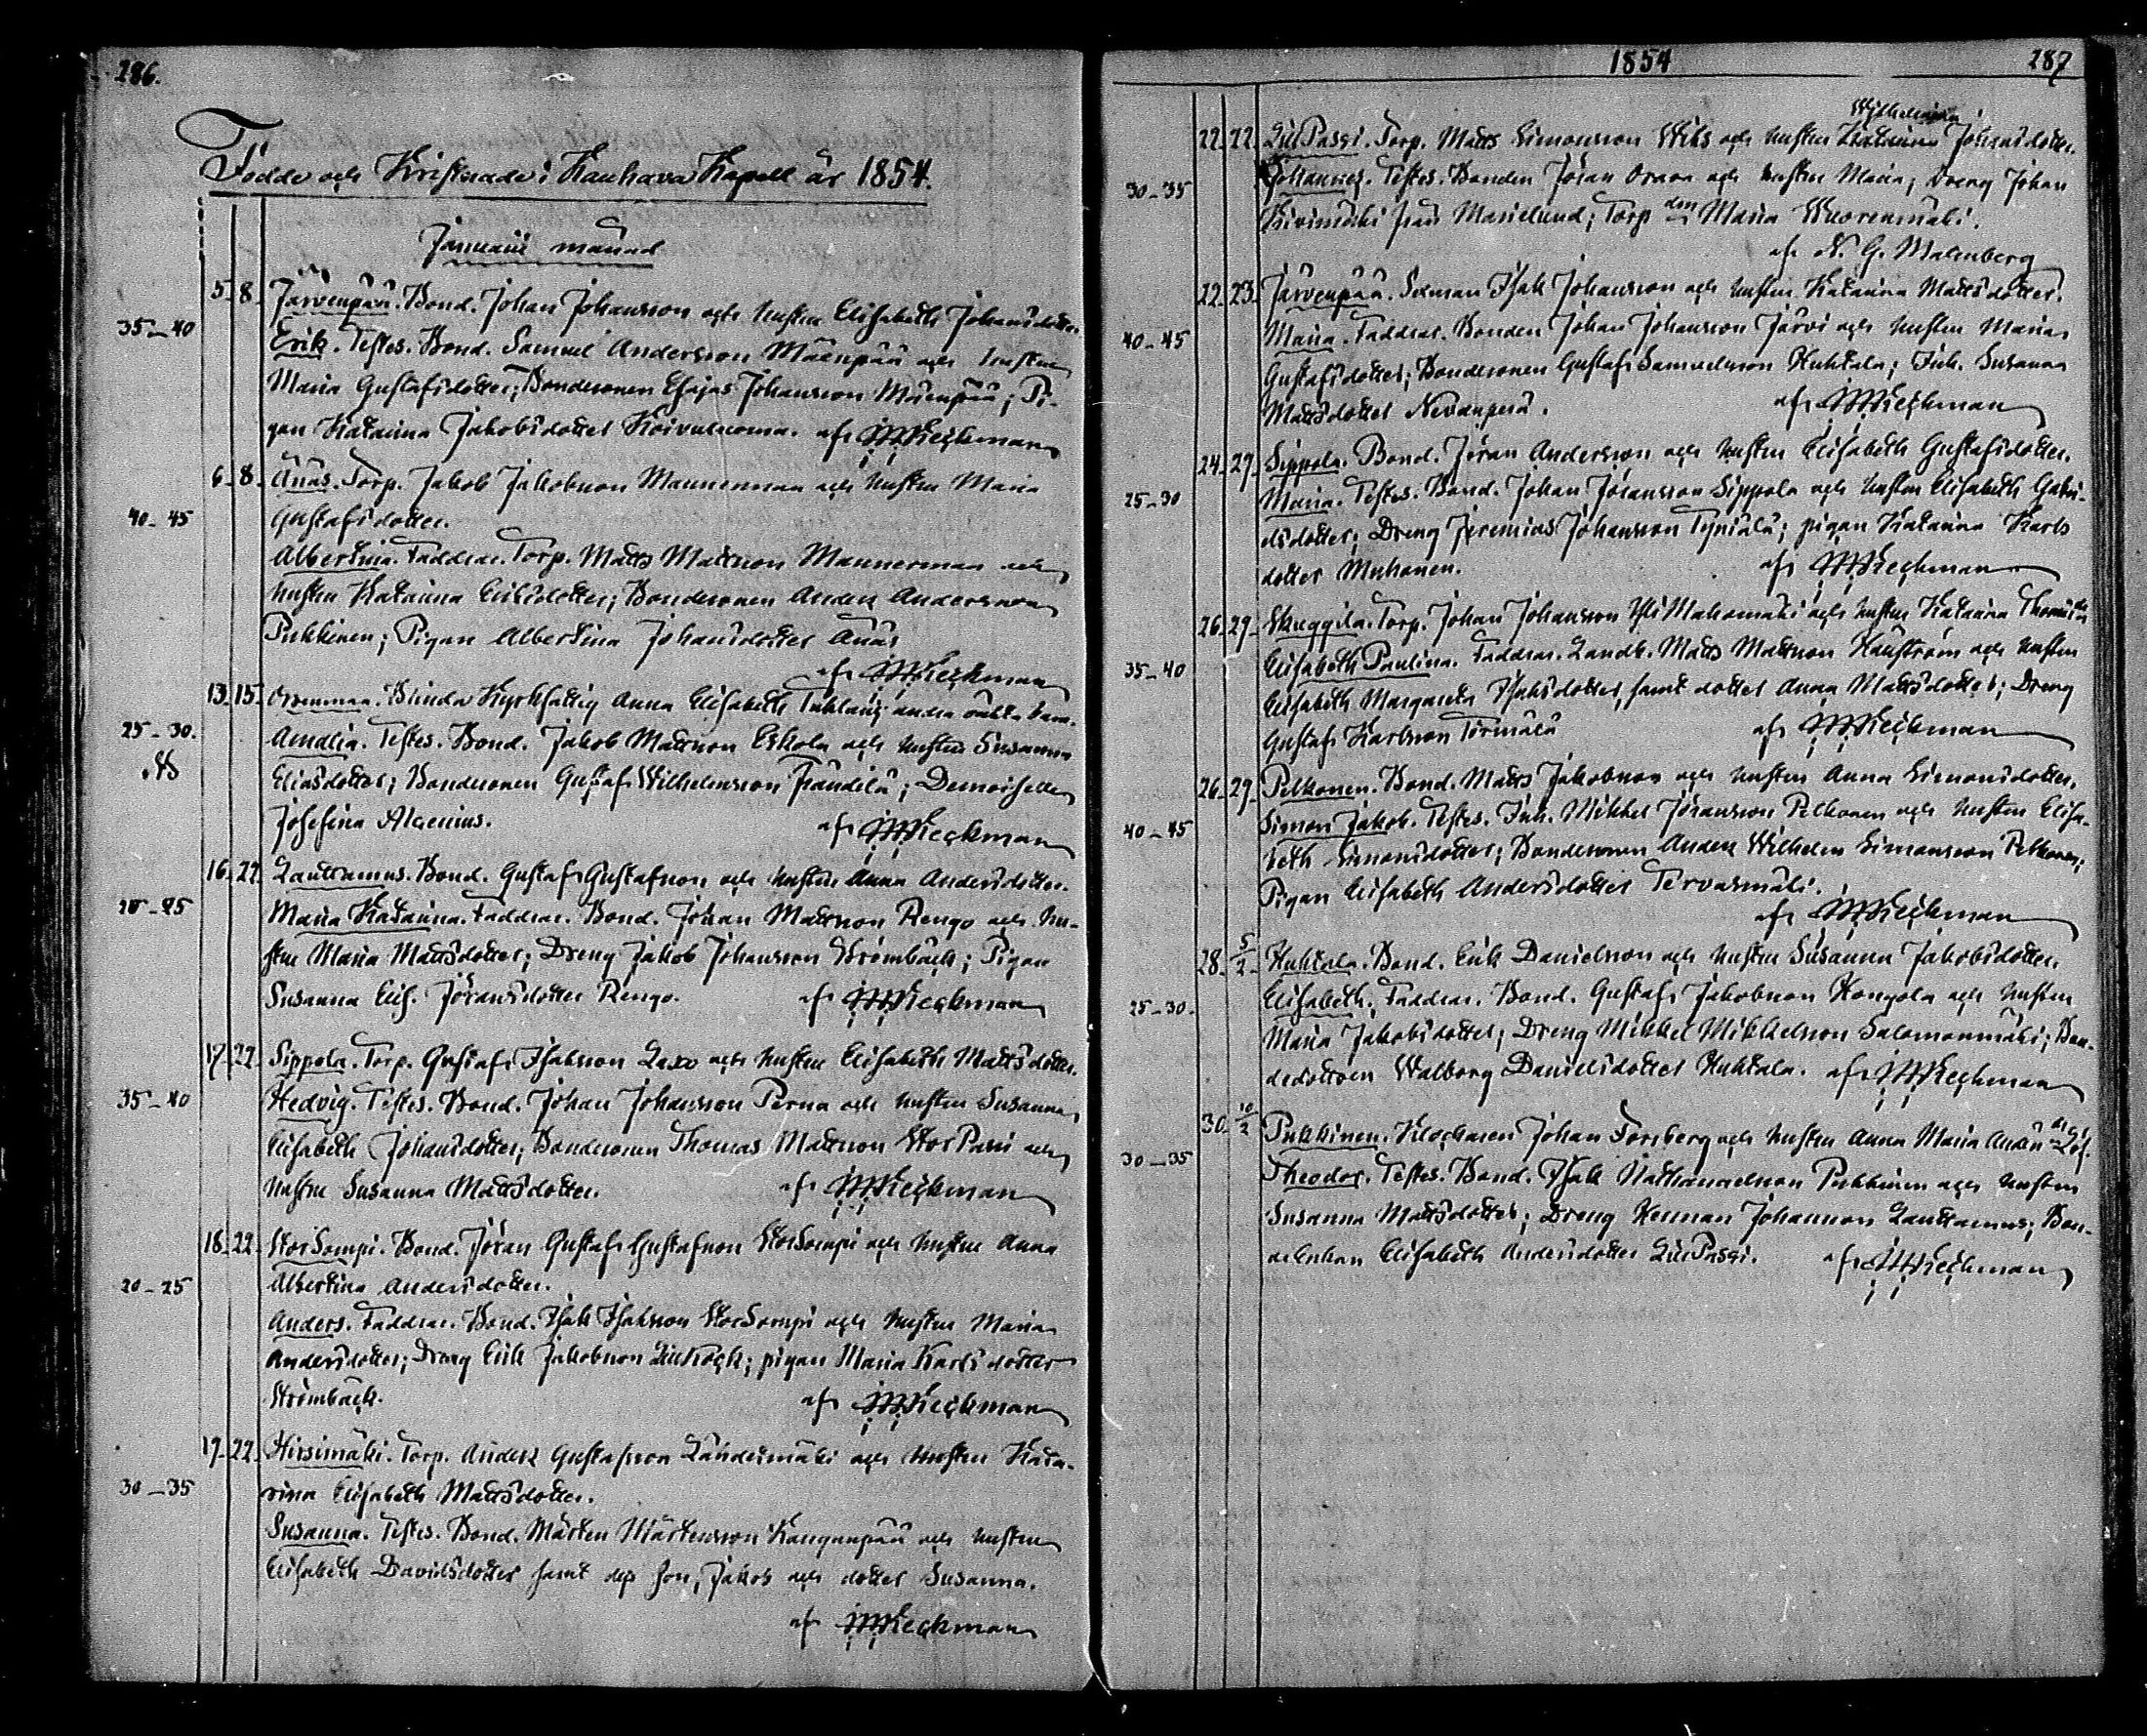 286.
Födde och Kristnade i Kauhava Kapell år 1854.
Januarii månad
5. 8. Järvenpää. Bond. Johan Johansson och hustru Elisabeth Johansdotter.
35–40 Erik. Testes. Bond. Samuel Andersson Mäenpää och hustru
Maria Gustafsdotter; Bondesonen Esajas Johansson Mäenpää; Pi-
gan Katarina Jakobsdotter Koivuluoma. af Heikman
6. 8. Änäs. Torp. Jakob Jakobsson Mannerman och hustru Maria
40–45 Gustafsdotter.
Albertina. Faddrar. Torp. Matts Mattsson Mannerman och
hustru Katarina Eriksdotter; Bondesonen Anders Andersson
Pukkinen; Pigan Albertina Johansdotter Änäs
af
13. 15. Blinda Kyrkhattig Anna Elisabeth andra oäkta barn.
25–30. Amalia. Testes. Bond. Jakob Mattsson Eskola och hustru Susanna
Eliasdotter; Bondesonen Gustaf Wilhelmsson Frändilä; Demoiselle
Josefina Alcenius. af
16. 22. Lauttamus. Bond. Gustaf Gustafsson och hustru Anna Andersdotter.
20–25 Maria Katarina. Faddrar. Bond. Johan Mattsson Rengo och hu-
stru Maria Mattsdotter; Dreng Jakob Johansson Strömbäck; Pigan
Susanna Elis. Jöransdotter Rengo. af
17. 22. Sippola. Torp. Gustaf Isaksson Laxo och hustru Elisabeth Mattsdotter.
35–40 Hedvig. Testes. Bond. Johan Johansson Perna och hustru Susanna
Elisabeth Johansdotter; Bondesonen Thomas Mattsson StorPassi och
hustru Susanna Mattsdotter. af
18. 22. StorSompi. Bond. Jöran Gustaf Gustafsson StorSompi och hustru Anna
20–25 Albertina Andersdotter.
Anders. Faddrar. Bond. Isak Isaksson StorSompi och hustru Maria
Andersdotter; Dreng Erik Jakobsson; pigan Maria Karlsdotter
Strömbäck. af
17. 22. Hirsimäki. Torp. Anders Gustafsson Ländesmäki och hustru Kata-
30–35 rina Elisabeth Mattsdotter.
Susanna. Testes. Bond. Mårten Mårtensson Kanganpää och hustru
Elisabeth Davidsdotter samt des son, Jakob och dotter Susanna.
af
1854 287
Wilhelmina
22. 22. LillPassi. Torp. Matts Simonsson Wiks och hustru Katarina Johansdotter.
30–35 Johannes. Testes. Bonden Jöran Orava och hustru Maria; Dreng Johan
Kivimäki från Marielund; Torp. dttr Maria Wuorenmäki.
af N. G. Malmberg
22. 23. Järvenpää. Sexman Isak Johansson och hustru Katarina Mattsdotter.
40–45 Maria. Faddrar. Bonden Johan Johansson Järvi och hustru Maria
Gustafsdotter; Bondesonen Gustaf Samuelsson Huhtala; Inh. Susanna
Mattsdotter Nevanperä. af
24. 29. Sippola. Bond. Jöran Andersson och hustru Elisabeth Gustafsdotter.
25–30 Maria. Testes. Bond. Johan Jöransson Sippola och hustru Elisabeth Gabri-
elsdotter; Dreng Jeremias Johansson Tyniälä; pigan Katarina Karls
dotter Muhonen. af
26. 29. Skuggila. Torp. Johan Johansson och hustru Katarina
35–40 Elisabeth Paulina. Faddrar. Landb. Matts Mattsson Hallström och hustru
Elisabeth Margareta Isaksdotter, samt dotter Anna Mattsdotter; Dreng
Gustaf Karlsson Törmälä af
26. 29. Pelkonen. Bond. Matts Jakobsson och hustru Anna Simonsdotter.
40–45 Simon Jakob. Testes. Inh. Mikkel Jöransson Pelkonen och hustru Elisa-
beth Simonsdotter; Bondesonen Anders Wilhelm Simonsson Pelkonen;
Pigan Elisabeth Andersdotter Tervasmäki.
af
28. 5/2 Huhtala. Bond. Erik Danielsson och hustru Susanna Jakobsdotter.
25–30. Elisabeth. Faddrar. Bond. Gustaf Jakobsson Kongola och hustru
Maria Jakobsdotter; Dreng Mikkel Mikkelsson Salomonmäki; Bon-
dedottren Walborg Danielsdotter Huhtala. af
30. 10/2 Pukkinen. Klockaren Johan Forsberg och hustru Anna Maria
30–35 Theodor. Testes. Bond. Isak Nathanaelsson Pukkinen och hustru
Susanna Mattsdotter; Dreng Herman Johansson Lauttamus; Bon-
deenkan Elisabeth Andersdotter LillPassi. af